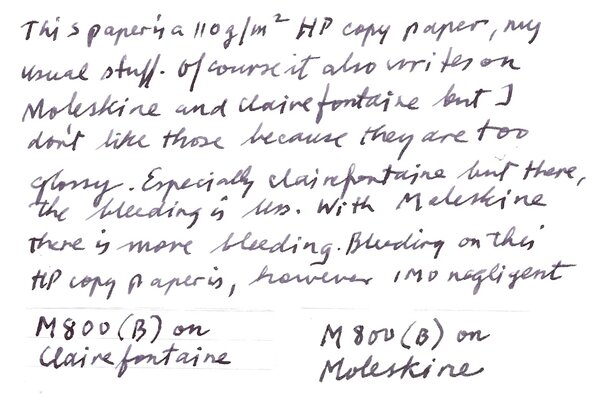 This paper is a 110 g/m² HP copy paper, my
usual stuff. Of course it also writes on
Moleskine and Clairefontaine but I
don't like those because they are too
glossy. Especially Clairefontaine but there,
the bleeding is less. With Moleskine
there is more bleeding. Bleeding on this
HP copy paper is, however IMO negligent
M800 (B) on
Clairefontaine
M800 (B) on
Moleskine